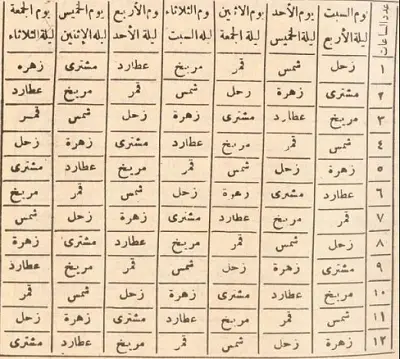 عدد الساعات
يوم السبت يوم الأحد يوم الاثنين يوم الثلاثاء يوم الأربع يوم الخميس يوم الجمعة
ليلة الأربع ليلة الخميس ليلة الجمعة ليله السبت ليلة الأحد ليله الإثنين ليلة الثلاثاء
١ زحل شمس قمر مريخ عطارد مشترى زهره
٢ مشترى زهرة زحل شمس قمر مريخ عطارد
٣ مريخ عطارد مشترى زهرة زحل شمس قمر
٤ شمس قمر مريخ عطارد مشترى زهرة زحل
٥ زهرة زحل شمس قمر مريخ عطارد مشترى
٦ عطارد مشترى زهرة زحل شمس قمر مريخ
٧ قمر مريخ عطارد مشترى زهرة زحل شمس
٨ زحل شمس قمر مريخ عطارد مشترى زهرة
٩ مشترى زهرة زحل شمس قمر مريخ عطارد
١٠ مريخ عطارد مشترى زهرة زحل شمس قمر
١١ شمس قمر مريخ عطارد مشترى زهرة زحل
١٢ زهرة زحل شمس قمر مريخ عطارد مشترى